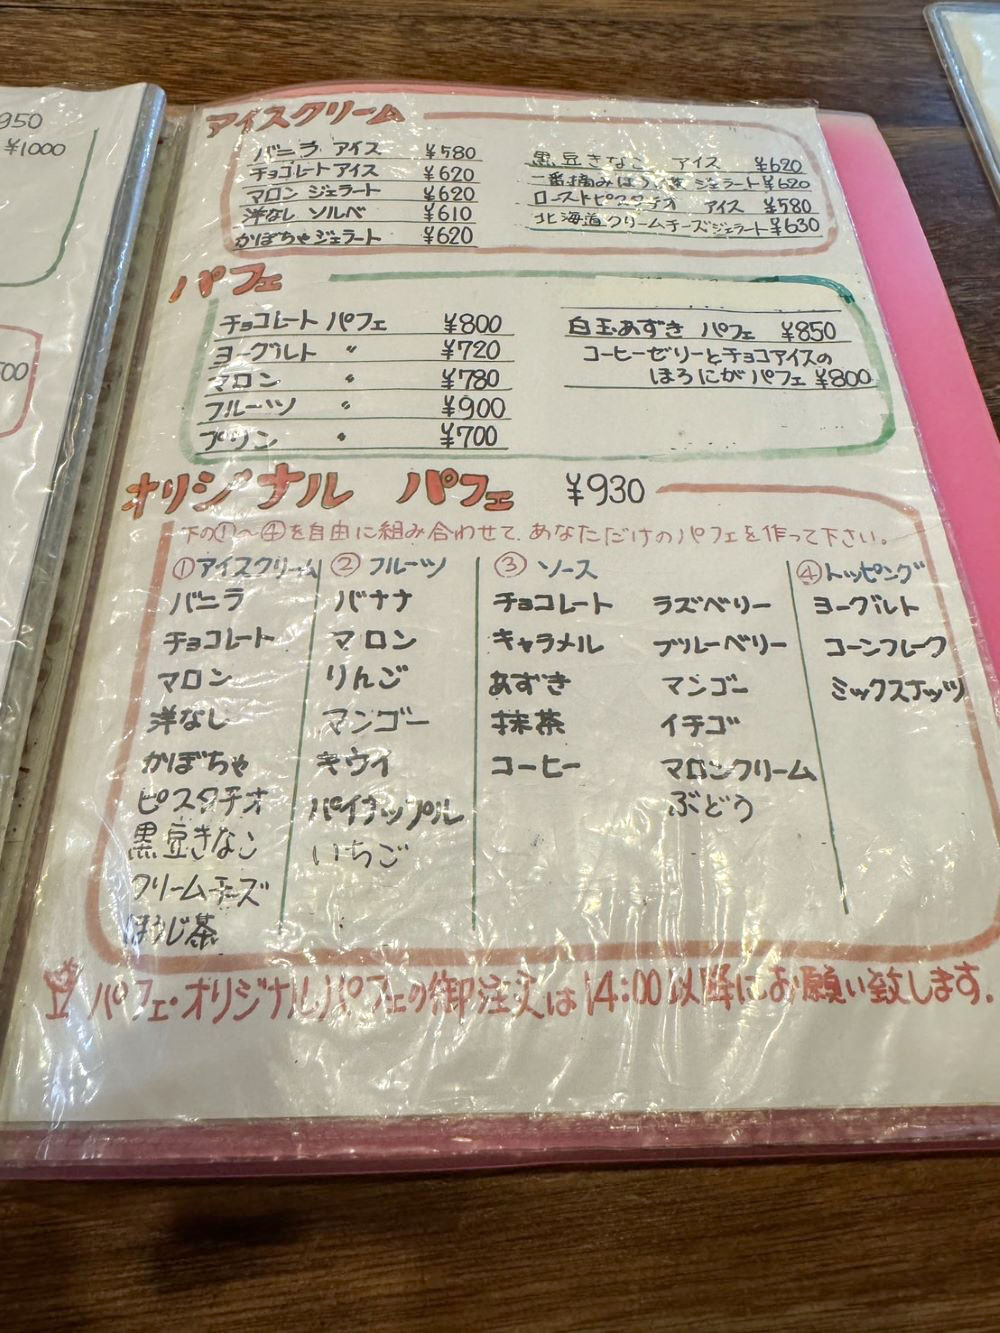 950
¥1000
アイスクリーム
バニラ アイス ¥580
チョコレートアイス ¥620
マロン ジェラート ¥620
洋なし ソルベ ¥610
かぼちゃジェラート ¥620
黒豆きなこ アイス ¥620
一番摘みほうじ茶 ジェラート ¥620
ローストピスタチオ アイス ¥580
北海道クリームチーズジェラート ¥630
パフェ
チョコレート パフェ ¥800
ヨーグルト 〃 ¥720
マロン 〃 ¥780
フルーツ 〃 ¥900
プリン 〃 ¥700
白玉あずき パフェ ¥850
コーヒーゼリーとチョコアイスの
ほろにがパフェ ¥800
オリジナル パフェ ¥930
下の①〜④を自由に組み合わせて、あなただけのパフェを作って下さい。
①アイスクリーム
バニラ
チョコレート
マロン
洋なし
かぼちゃ
ピスタチオ
黒豆きなこ
クリームチーズ
ほうじ茶
② フルーツ
バナナ
マロン
りんご
マンゴー
キウイ
パイナップル
いちご
③ ソース
チョコレート
キャラメル
あずき
抹茶
コーヒー
ラズベリー
ブルーベリー
マンゴー
イチゴ
マロンクリーム
ぶどう
④トッピング
ヨーグルト
コーンフレーク
ミックスナッツ
パフェ・オリジナルパフェの御注文は14:00以降にお願い致します。